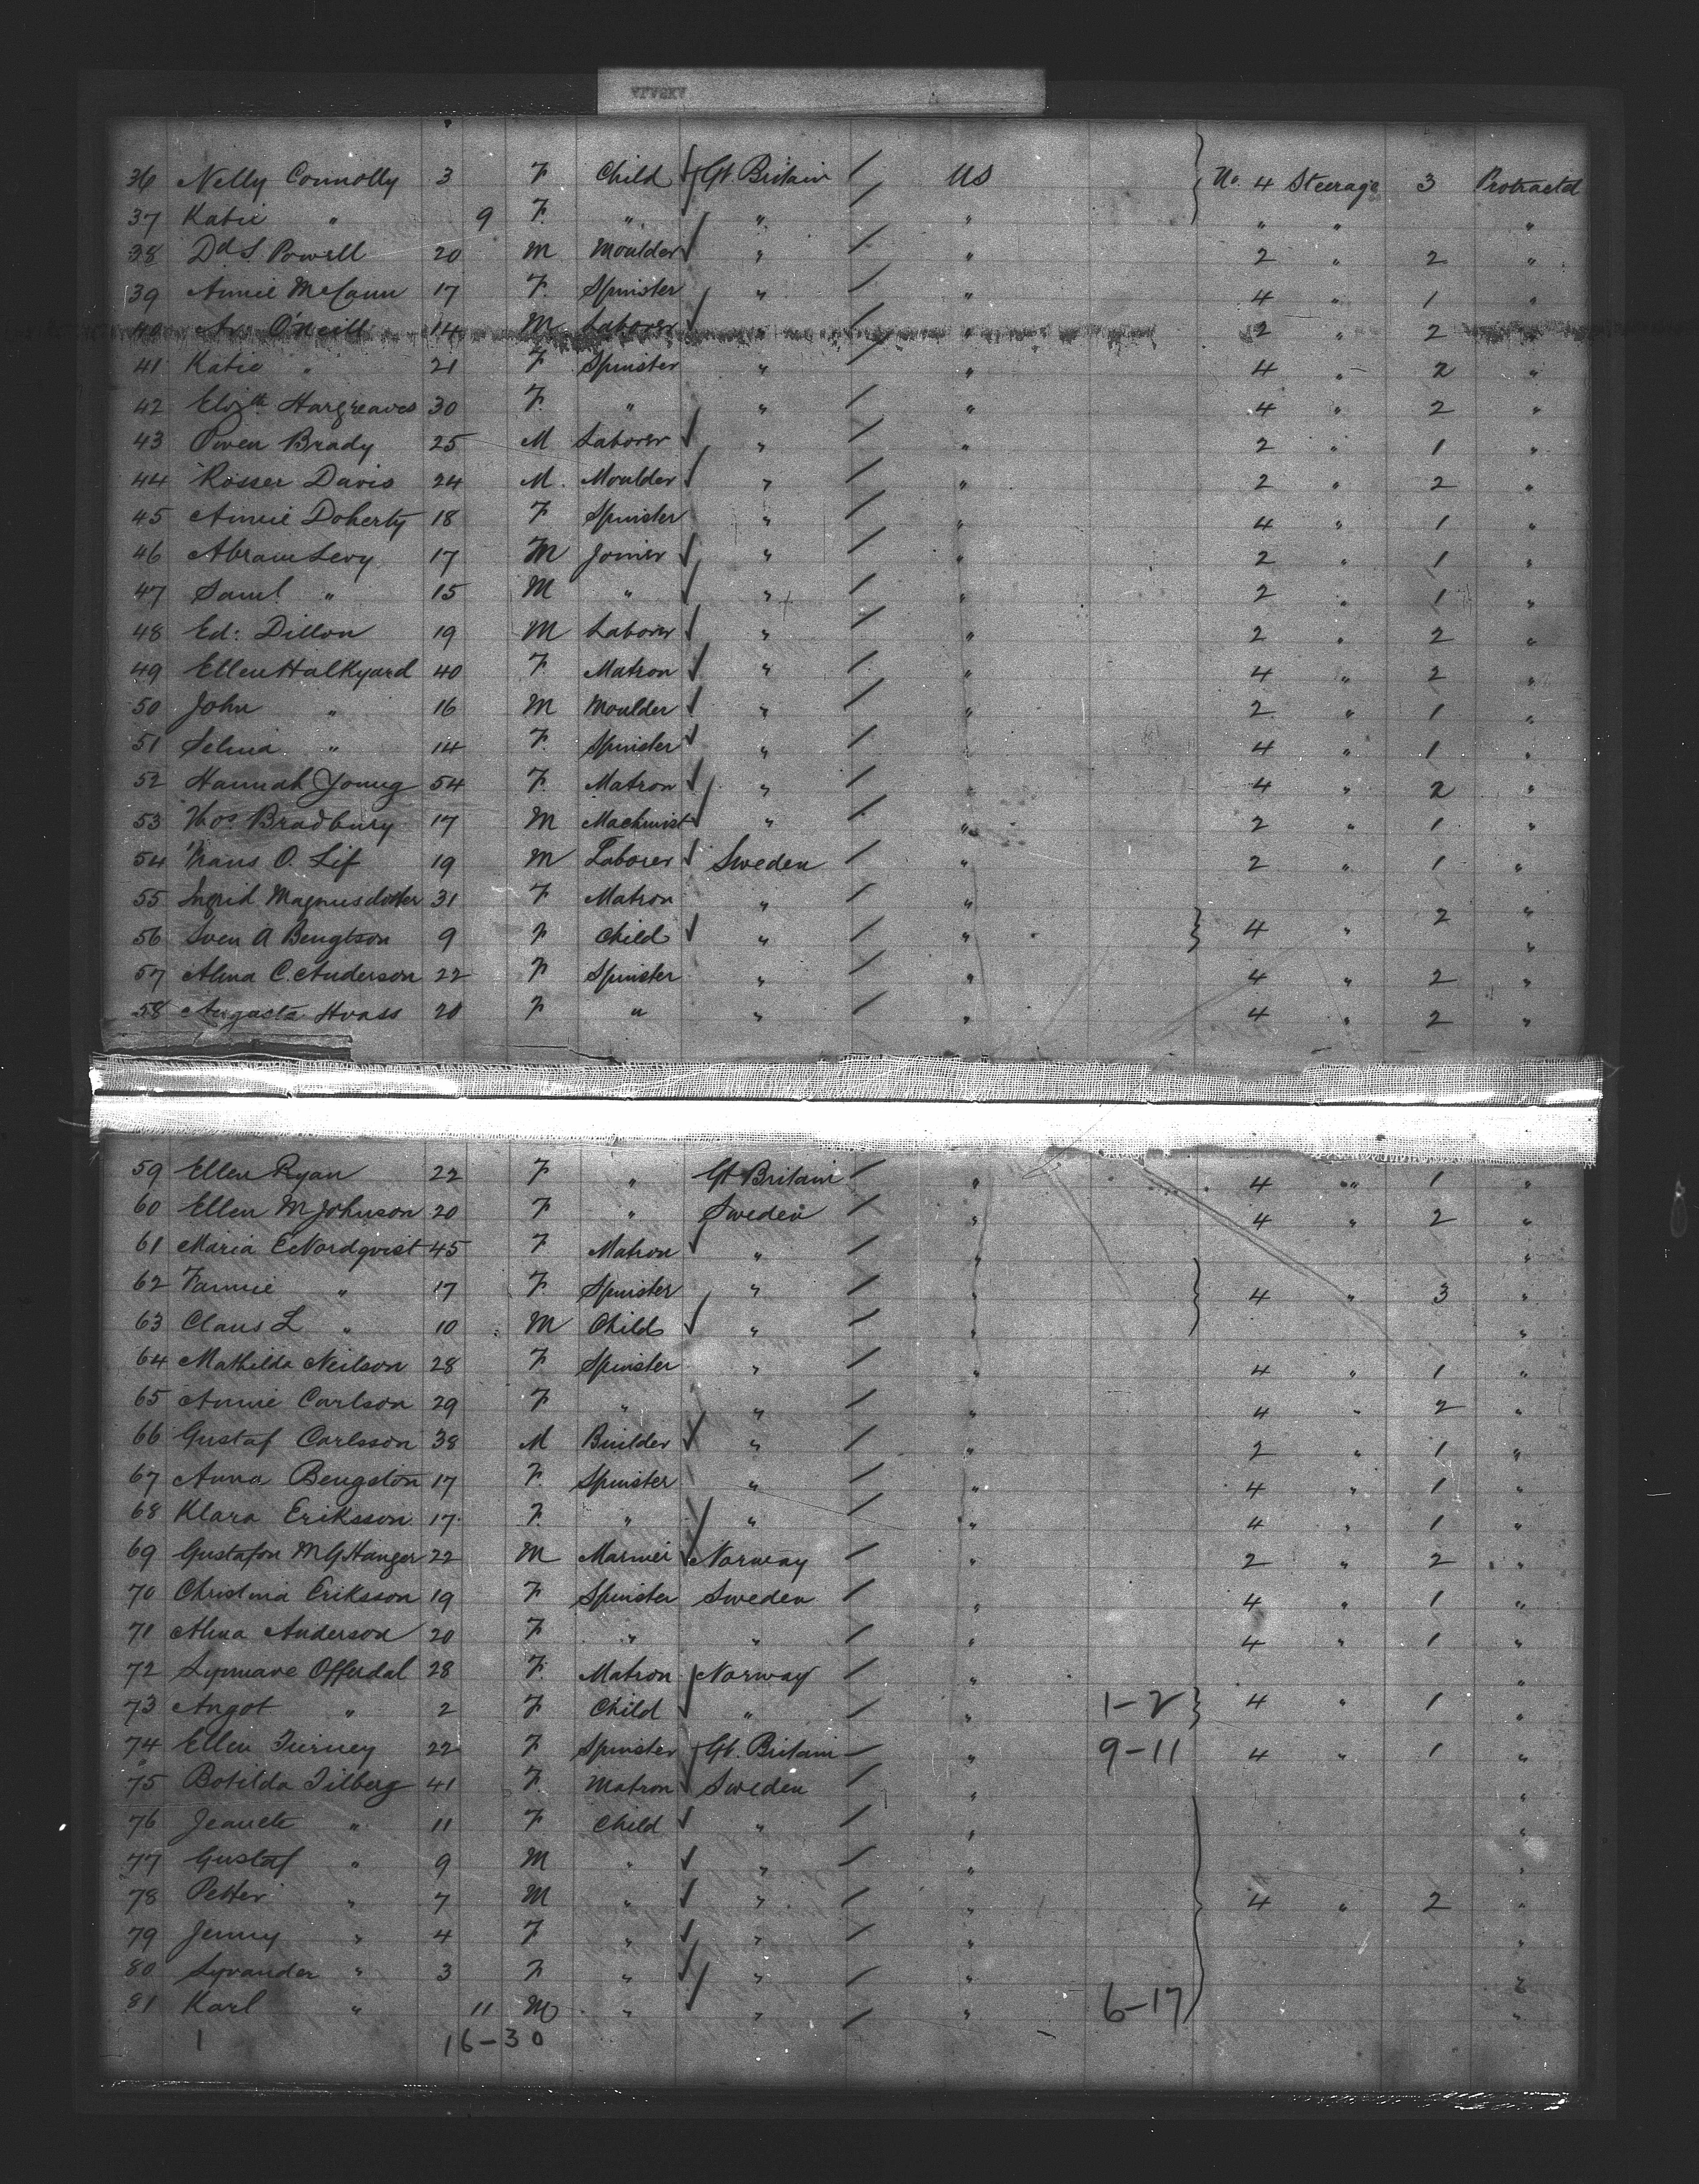 36 Nelly Connolly 3 F Child Gt. Britain / US No. 4 Steerage 3 Protracted
37 Katie " 9 F " " / " " " "
38 Dd. S. Powell 20 M Moulder " / " 2 " 2 "
39 Annie McCann 17 F Spinster " / " 4 " 1 "
40 O'Neill 14 M Laborer " / " 2 " 2 "
41 Katie " 21 F Spinster " / " 4 " 2 "
42 Elizth Hargreaves 30 F " " / " 4 " 2 "
43 Owen Brady 25 M Laborer " / " 2 " 1 "
44 Rosser Davis 24 M Moulder " / " 2 " 2 "
45 Annie Doherty 18 F Spinster " / " 4 " 1 "
46 Abram Levy 17 M Joiner " / " 2 " 1 "
47 Saml. " 15 M " " / " 2 " 1 "
48 Ed: Dillon 19 M Laborer " / " 2 " 2 "
49 Ellen Halkyard 40 F Matron " / " 4 " 2 "
50 John " 16 M Moulder " / " 2 " 1 "
51 Selina " 14 F Spinster " / " 4 " 1 "
52 Hannah Young 54 F Matron " / " 4 " 2 "
53 Thos Bradbury 17 M Machinist " / " 2 " 1 "
54 O. Lif 19 M Laborer Sweden / " 2 " 1 "
55 Ingrid Magnusdotter 31 F Matron " / " "
56 Sven A Bengtson 9 F Child " / " 4 " 2 "
57 Alma C. Anderson 22 F Spinster " / " 4 " 2 "
58 Augusta Hvass 20 F " " / " 4 " 2 "
59 Ellen Ryan 22 F " Gt Britain / " 4 " 1 "
60 Ellen M Johnson 20 F " Sweden / " 4 " 2 "
61 Maria C Nordqvist 45 F Matron " / " "
62 Fannie " 17 F Spinster " / " 4 " 3 "
63 Claus L " 10 M Child " / " "
64 Mathilda Neilson 28 F Spinster " / " 4 " 1 "
65 Annie Carlson 29 F " " / " 4 " 2 "
66 Gustaf Carlsson 38 M Builder " / " 2 " 1 "
67 Anna Bengston 17 F Spinster " / " 4 " 1 "
68 Klara Eriksson 17 F " " / " 4 " 1 "
69 Gustafon M G Hanger 22 M Norway / " 2 " 2 "
70 Christina Eriksson 19 F Spinster Sweden / " 4 " 1 "
71 Alma Anderson 20 F " " / " 4 " 1 "
72 Offerdal 28 F Matron Norway / " "
73 Angot " 2 F Child " / " 1-2 4 " 1 "
74 Ellen Tierney 22 F Spinster Gt. Britain / " 9-11 4 " 1 "
75 Botilda Tilberg 41 F Matron Sweden / " "
76 Jeanete " 11 F Child " / " "
77 Gustaf " 9 M " " / " "
78 Petter " 7 M " " / " 4 " 2 "
79 Jenny " 4 F " " / " "
80 Syvander " 3 F " " / " "
81 Karl " 11 M " " / " 6-17 "
1 16-30